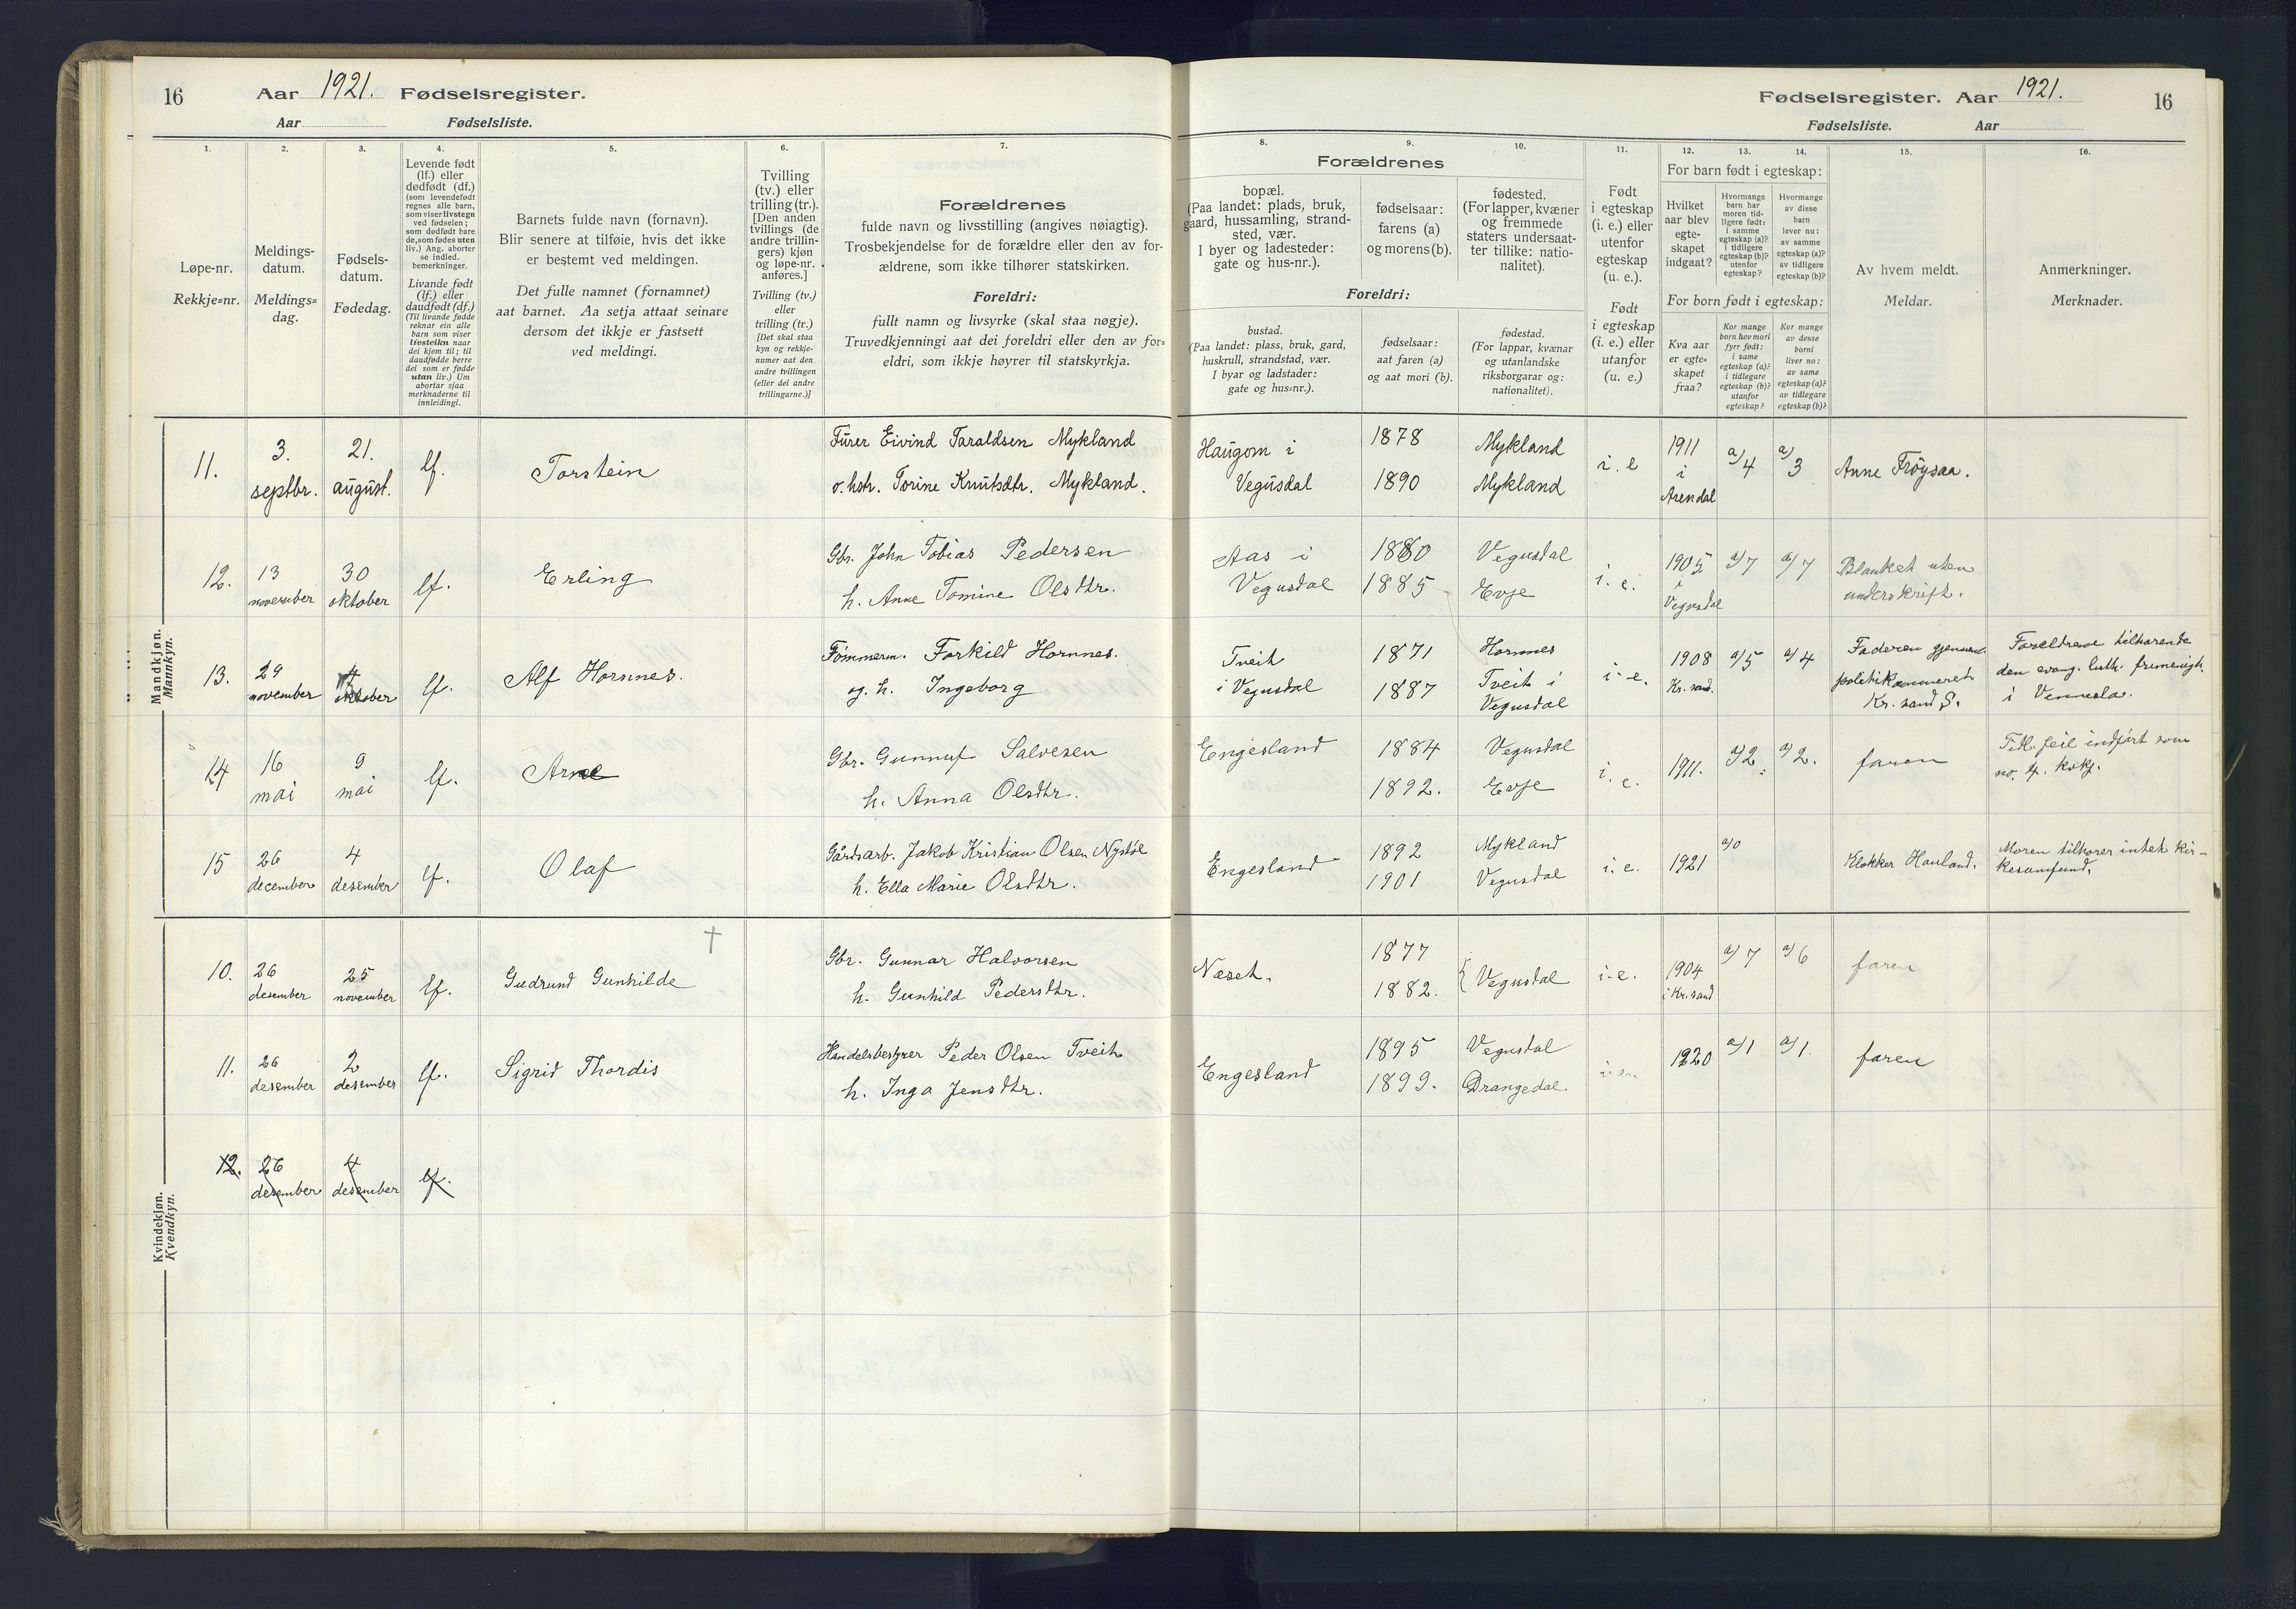 16 Aar 1921. Fødselsregister.
Aar Fødselsliste.
Fødselsregister. Aar 1921. 16
Fødselsliste. Aar
1.
Løpe-nr.
Rekkje=nr.
2.
Meldings-
datum.
Meldings=
dag.
3.
Fødsels-
datum.
Fødedag.
4.
Levende født
(lf.) eller
dødfødt (df.)
(som levendefødt
regnes alle barn,
som viser livstegn
ved fødselen;
som dødfødt bare
de, som fødes uten
liv.) Ang. aborter
se indled.
bemerkninger.
Livande født
(lf.) eller
daudfødt (df.)
(Til livande fødde
reknar ein alle
barn som viser
livsteikn naar
dei kjem til; til
daudfødde berre
dei som er fødde
utan liv.) Um
abortar sjaa
merknaderne til
innleidingi.
5.
Barnets fulde navn (fornavn).
Blir senere at tilføie, hvis det ikke
er bestemt ved meldingen.
Det fulle namnet (fornamnet)
aat barnet. Aa setja attaat seinare
dersom det ikkje er fastsett
ved meldingi.
6.
Tvilling
(tv.) eller
trilling (tr.).
[Den anden
tvillings (de
andre trillin-
gers) kjøn
og løpe-nr.
anføres.]
Tvilling (tv.)
eller
trilling (tr.)
[Det skal staa
kyn og rekkje-
numer aat den
andre tvillingen
(eller dei andre
trillingarne.)]
7.
Forældrenes
fulde navn og livsstilling (angives nøiagtig).
Trosbekjendelse for de forældre eller den av for-
ældrene, som ikke tilhører statskirken.
Foreldri:
fullt namn og livsyrke (skal staa nøgje).
Truvedkjenningi aat dei foreldri eller den av for=
eldri, som ikkje høyrer til statskyrkja.
Forældrenes
8.
bopæl.
(Paa landet: plads, bruk,
gaard, hussamling, strand-
sted, vær.
I byer og ladesteder:
gate og hus-nr.).
9.
fødselsaar:
farens (a)
og morens (b).
10.
fødested.
(For lapper, kvæner
og fremmede
staters undersaat-
ter tillike: natio-
nalitet).
Foreldri:
bustad.
(Paa landet: plass, bruk, gard,
huskrull, strandstad, vær.
I byar og ladstader:
gate og hus=nr.).
fødselsaar:
aat faren (a)
og aat mori (b).
fødestad.
(For lappar, kvænar
og utanlandske
riksborgarar og:
nationalitet).
11.
Født
i egteskap
(i. e.) eller
utenfor
egteskap
(u. e.).
Født
i egteskap
(i. e.) eller
utanfor
(u. e.)
For barn født i egteskap:
12.
Hvilket
aar blev
egte-
skapet
indgaat?
13.
Hvormange
barn har
moren tid-
ligere født:
i samme
egteskap (a)?
i tidligere
egteskap (b)?
utenfor
egteskap?
14.
Hvormange
av disse
barn
lever nu:
av samme
egteskap (a)?
av tidligere
egteskap (b)?
For born født i egteskap:
Kva aar
er egte=
skapet
fraa?
Kor mange
born hev mori
fyrr født:
i same
egteskap (a)?
i tidlegare
egteskap (b)?
utanfor
egteskap?
Kor mange
av desse
borni
liver no:
av same
egteskap (a)?
av tidlegare
egteskap (b)?
15.
Av hvem meldt.
Meldar.
16.
Anmerkninger.
Merknader.
Mandkjøn.
Mannkyn.
11. 3. septbr. 21. august. lf. Torstein
Fürer Eivind Taraldsen Mykland
o. hstr. Torine Knutsdtr. Mykland.
Haugom i
Vegusdal
1878
1890
Mykland
Mykland
i. e 1911 i Arendal a/4 a/3 Anne Frøysaa.
12. 13 november 30 oktober lf. Erling
Gbr. John Tobias Pedersen
h. Anne Tomine Olsdtr.
Aas i
Vegusdal
1880
1885
Vegusdal
Evje
i. e. 1905 i Vegusdal a/7 a/7
Blanket uten
underskrift.
13. 29 november 4 oktober lf. Alf Hornnes.
Tømmerm. Torkild Hornnes.
og h. Ingeborg
Tveit
i Vegusdal
1871
1887
Hornnes
Tveit i
Vegusdal
i. e. 1908 Kr. sand. a/5 a/4
Faderen gjennem
politikammeret
Kr. sand S.
Foreldrene tilhørende
den evang. luth. frimenigh.
i Vennesla.
14 16 mai 9 mai lf. Arne
Gbr. Gunnuf Salvesen
h. Anna Olsdtr.
Engesland
1884
1892.
Vegusdal
Evje
i. e. 1911. a/2. a/2. faren
feil indført som
no. 4.
15 26 december 4 desember lf. Olaf
Gårdsarb. Jakob Kristian Olsen Nystøl
h. Ella Marie Olsdtr.
Engesland
1892
1901
Mykland
Vegusdal
i. e. 1921 a/0 Klokker Hauland.
Moren tilhører intet kir-
kesamfund.
Kvindekjøn.
Kvendkyn.
10. 26 desember 25 november lf. Gudrund Gunhilde †
Gbr. Gunnar Halvorsen
h. Gunhild Pedersdtr.
Neset.
1877
1882.
Vegusdal
i. e. 1904 i Kr. sand a/7 a/6 faren
11. 26 desember 2 desember lf. Sigrid Thordis
Handelsbestyrer Peder Olsen Tveit
h. Inga Jensdtr.
Engesland
1895
1899.
Vegusdal
Drangedal.
i. e. 1920 a/1 a/1. faren
12. 26 desember 4 desember lf.